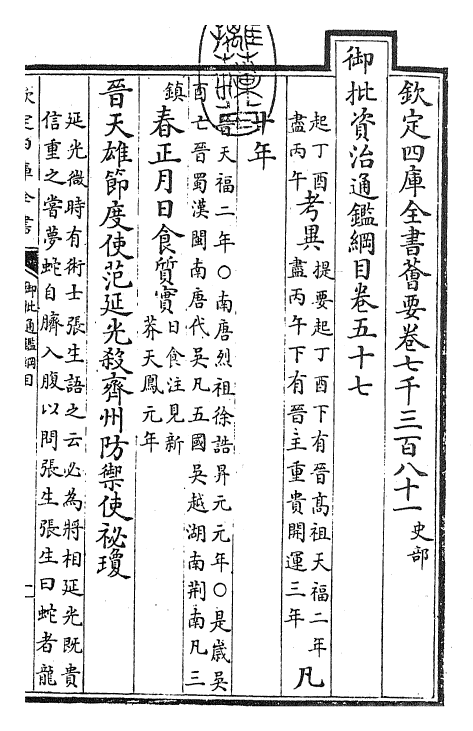 欽定四庫全書薈要卷七千三百八十一 史部
御批資治通鑑綱目卷五十七
起丁酉
盡丙午
考異
提要起丁酉下有晉高祖天福二年
盡丙午下有晉主重貴開運三年
凡
十年
晉天福二年○南唐烈祖徐誥昇元元年○是歲吳
酉亡晉蜀漢閩南唐代吳凡五國吳越湖南荆南凡三
鎮
春正月日食質實
日食注見新
莽天鳳元年
晉天雄節度使范延光殺齊州防禦使祕瓊
延光微時有術士張生語之云必為將相延光既貴
信重之嘗夢蛇自臍入腹以問張生張生曰蛇者龍
欽定四庫全書
御批通鑑綱目
一